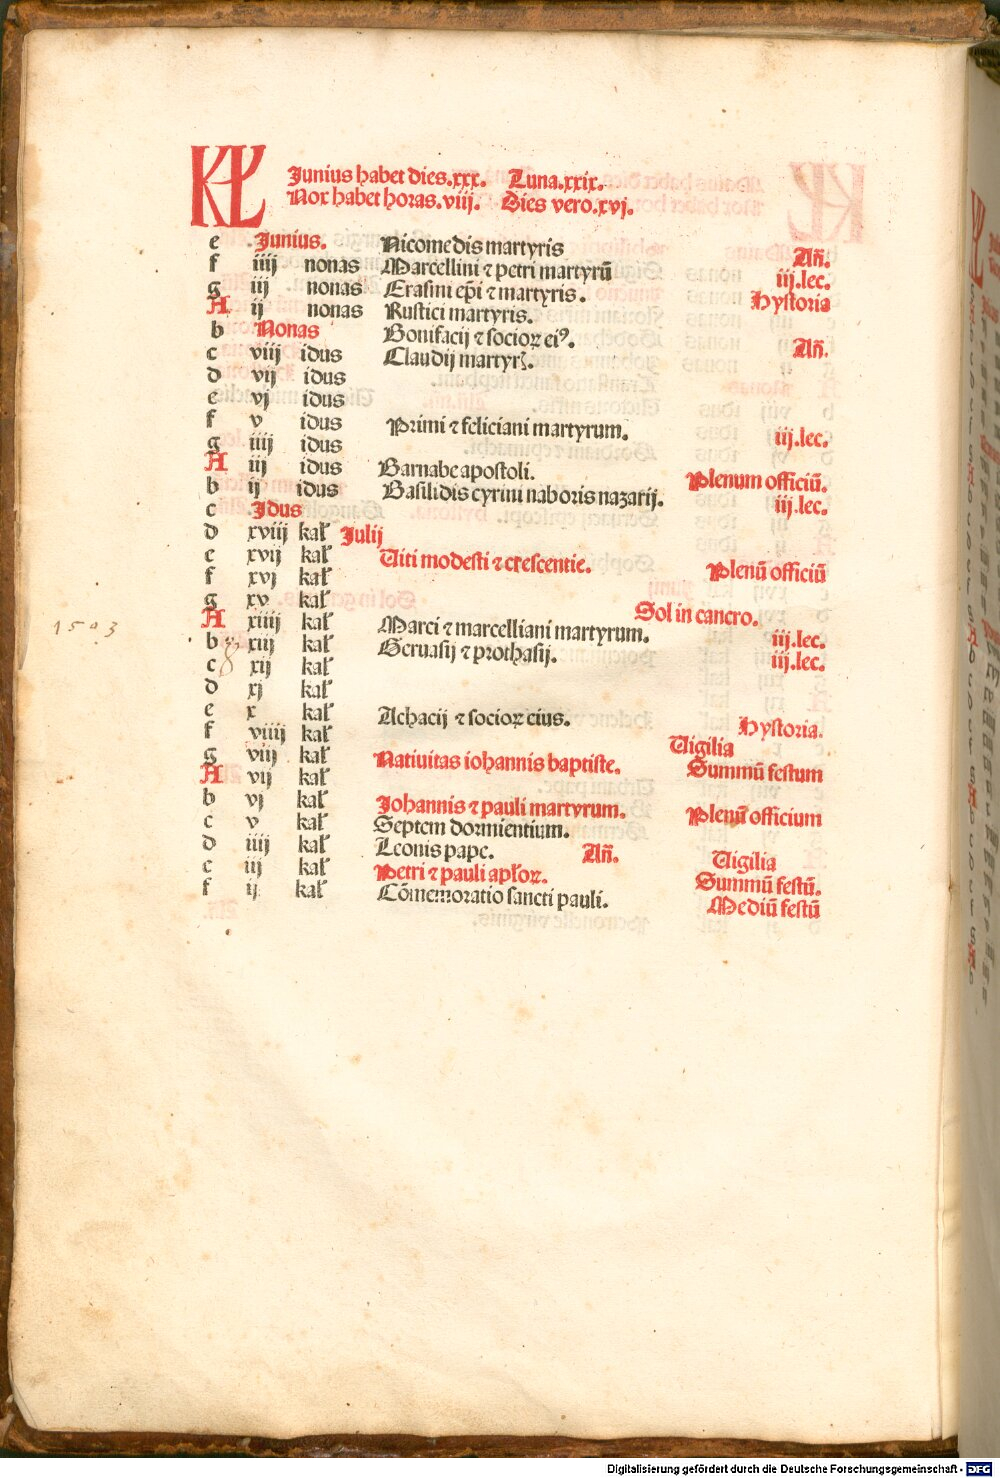 KL Junius habet dies.xxx. Luna.xxix.
Nox habet horas.viij. Dies vero.xvj.
e Junius. Nicomedis martyris Añ.
f iiij nonas Marcellini ⁊ petri martyrū iij.lec.
g iij nonas Erasmi ep̄i ⁊ martyris. Hystoria
A ij nonas Rustici martyris.
b Nonas Bonifacij ⁊ socioꝝ eiꝰ. Añ.
c viij idus Claudij martyrꝭ.
d vij idus
e vj idus
f v idus Primi ⁊ feliciani martyrum. iij.lec.
g iiij idus
A iij idus Barnabe apostoli. Plenum officiū.
b ij idus Basilidis cyrini naboris nazarij. iij.lec.
c Idus
d xviij kal' Julij
e xvij kal' Uiti modesti ⁊ crescentie. Plenū officiū
f xvj kal'
g xv kal' Sol in cancro.
A xiiij kal' Marci ⁊ marcelliani martyrum. iij.lec.
1503
b xiij kal' Geruasij ⁊ prothasij. iij.lec.
c xij kal'
d xj kal'
e x kal' Achacij ⁊ socioꝝ eius. Hystoria.
f viiij kal' Uigilia
g viij kal' Natiuitas iohannis baptiste. Summū festum
A vij kal'
b vj kal' Johannis ⁊ pauli martyrum. Plenū officium
c v kal' Septem dormientium.
d iiij kal' Leonis pape. Añ. Uigilia
e iij kal' Petri ⁊ pauli apl'oꝝ. Summū festū.
f ij kal' Cōmemoratio sancti pauli. Mediū festū
Digitalisierung gefördert durch die Deutsche Forschungsgemeinschaft - DFG